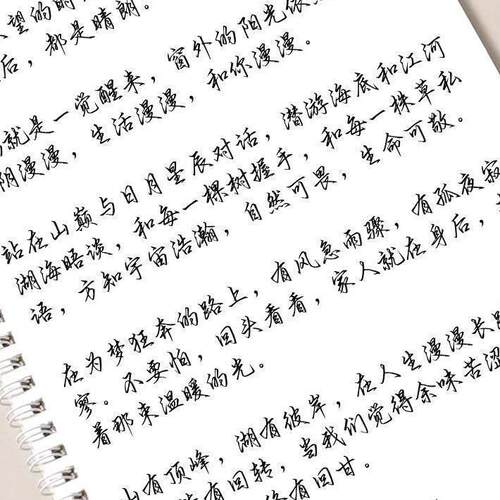 望的时
后,都是晴朗。
就是一觉醒来,窗外的阳光依
阴漫漫,生活漫漫,和你漫漫。
站在山巅与日月星辰对话,潜游海底和江河
湖海晤谈,和每一棵树握手,和每一株草私
语,方知宇宙浩瀚,自然可畏,生命可敬。
在为梦狂奔的路上,有风急雨骤,有孤夜寂
寥。不要怕,回头看看,家人就在身后,
着那束温暖的光。
山有顶峰,湖有彼岸,在人生漫漫长
有回转,当我们觉得余味苦涩
有回甘。